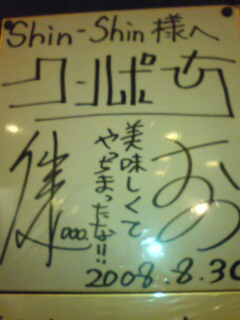 Shin-Shin 様へ
クールポコ
美味しくて
やっちまったな!!
2008.8.30